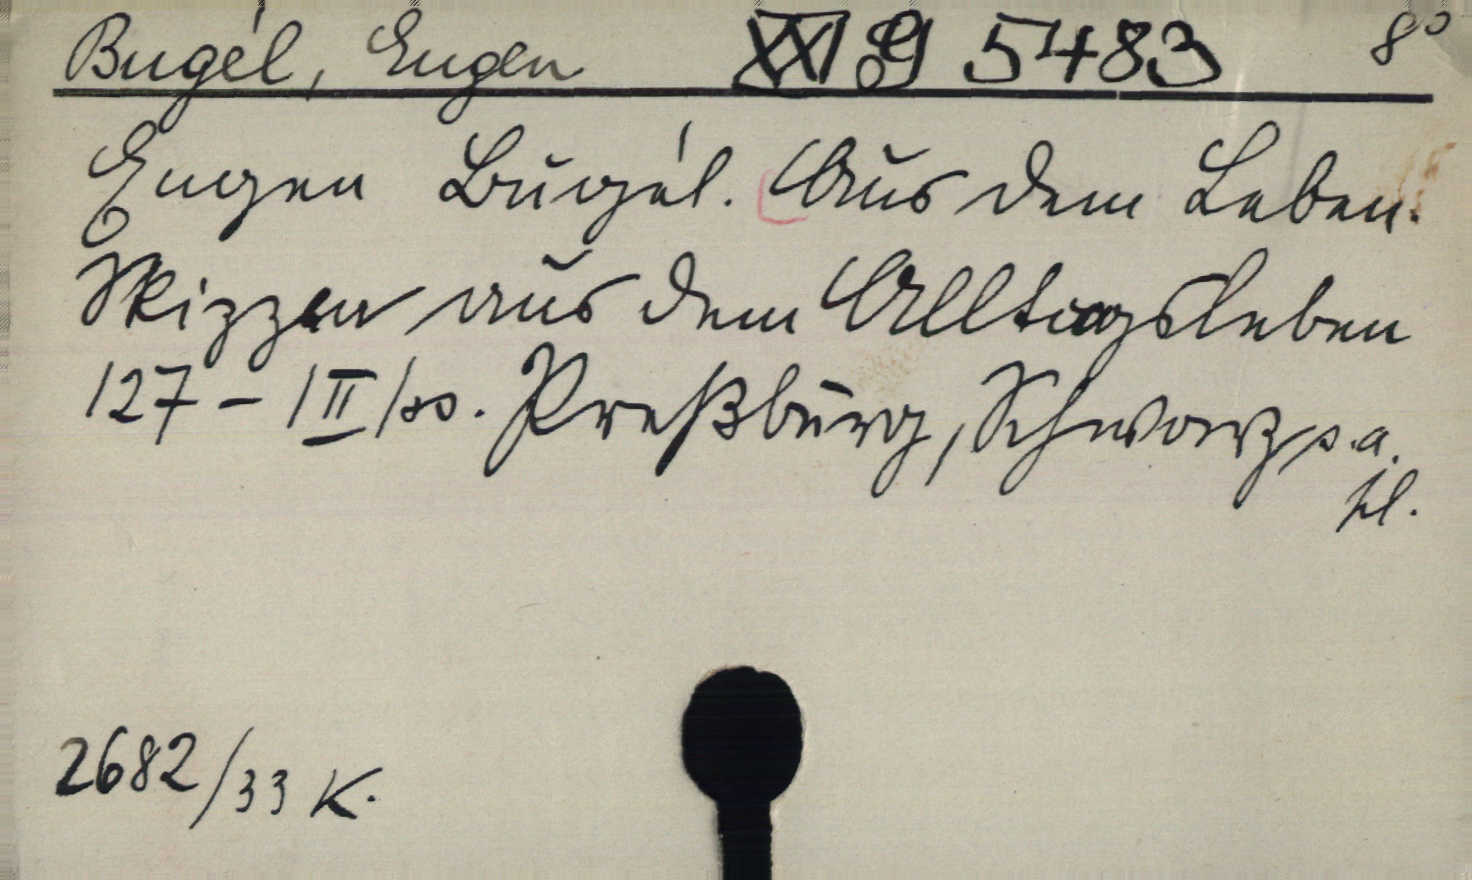 Bugél, Eugen XXI g 5483 8°
Eugen Bugél. Aus dem Leben.
Skizzen aus dem Alltagsleben
127 - |II| ss. Preßburg, Schwarz s.a.
kl.
2682/33 K.